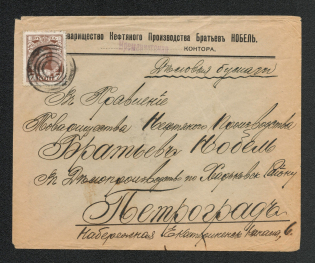 Товарищество Нефтяного Производства Братьевъ НОБЕЛЬ.
КОНТОРА.
Дѣловыя бумаги
Въ Правленіе
Товарищества Нефтяного Производства
Братьевъ Нобель
въ Дѣлопроизводство по Харьковск Району
Петроградъ
Набережная Екатерининск Канала, 6